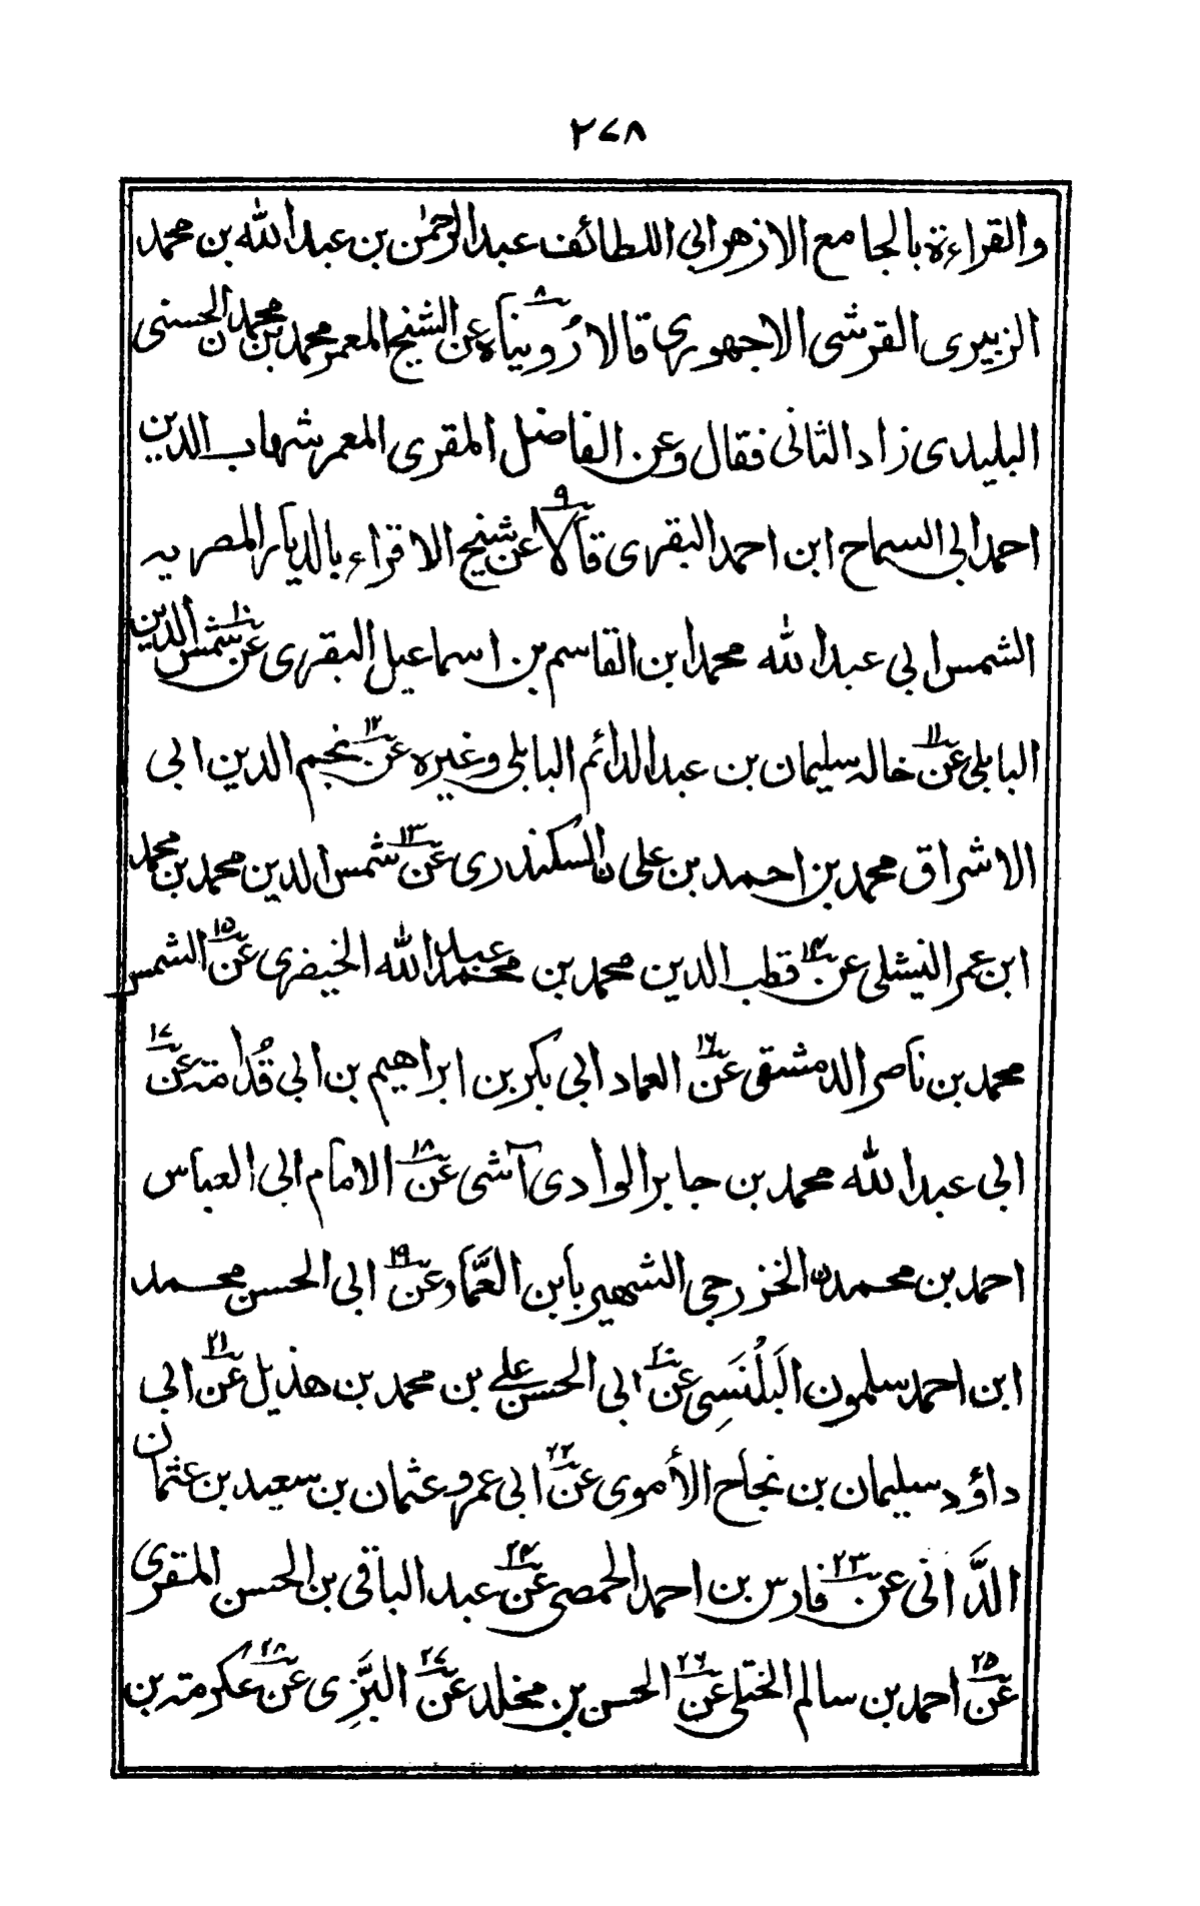 ٢٧٨
والقراءة بالجامع الازهر ابی اللطائف عبد الرحمٰن بن عبد الله بن محمد
الزبیری القرشی الاجهوری قالا رُویناه عن٨ الشیخ المعمر محمد بن محمدن الحسنی
البلیدی زاد الثانی فقال وعن الفاضل المقری المعمر شهاب الدین
احمد ابی السماح ابن احمد البقری قالا عن٩ شیخ الاقراء بالدیار المصریه
الشمس ابی عبد الله محمد ابن القاسم بن اسماعیل البقری عن١٠ شمس الدین
البابلی عن١١ خاله سلیمان بن عبد الدائم البابلی وغیره عن١٢ نجم الدین ابی
الاشراق محمد بن احمد بن علی ن السکندری عن١٣ شمس الدین محمد بن محمد
ابن عمر النیشلی عن١٤ قطب الدین محمد بن محمد عبد الله الخیضری عن١٥ الشمس
محمد بن ناصر الدمشقی عن١٦ العماد ابی بکر بن ابراهیم بن ابی قُدامته عن١٧
ابی عبد الله محمد بن جابر الوادی آشی عن١٨ الامام ابی العباس
احمد بن محمدن الخزرجی الشهیر بابن العَمَّاد عن١٩ ابی الحسن محمد
ابن احمد سلمون البَلُنَسِی عن٢٠ ابی الحسن علی بن محمد بن هذیل عن٢١ ابی
داؤد سلیمان بن نجاح الأموی عن٢٢ ابی عمرو عثمان بن سعید بن عثمان
الدَّانی عن٢٣ فارس بن احمد الحمصی عن٢٤ عبد الباقی بن الحسن المقری
عن٢٥ احمد بن سالم الختلی عن٢٦ الحسن بن مخلد عن٢٧ البَزِّی عن٢٨ عکرمته بن